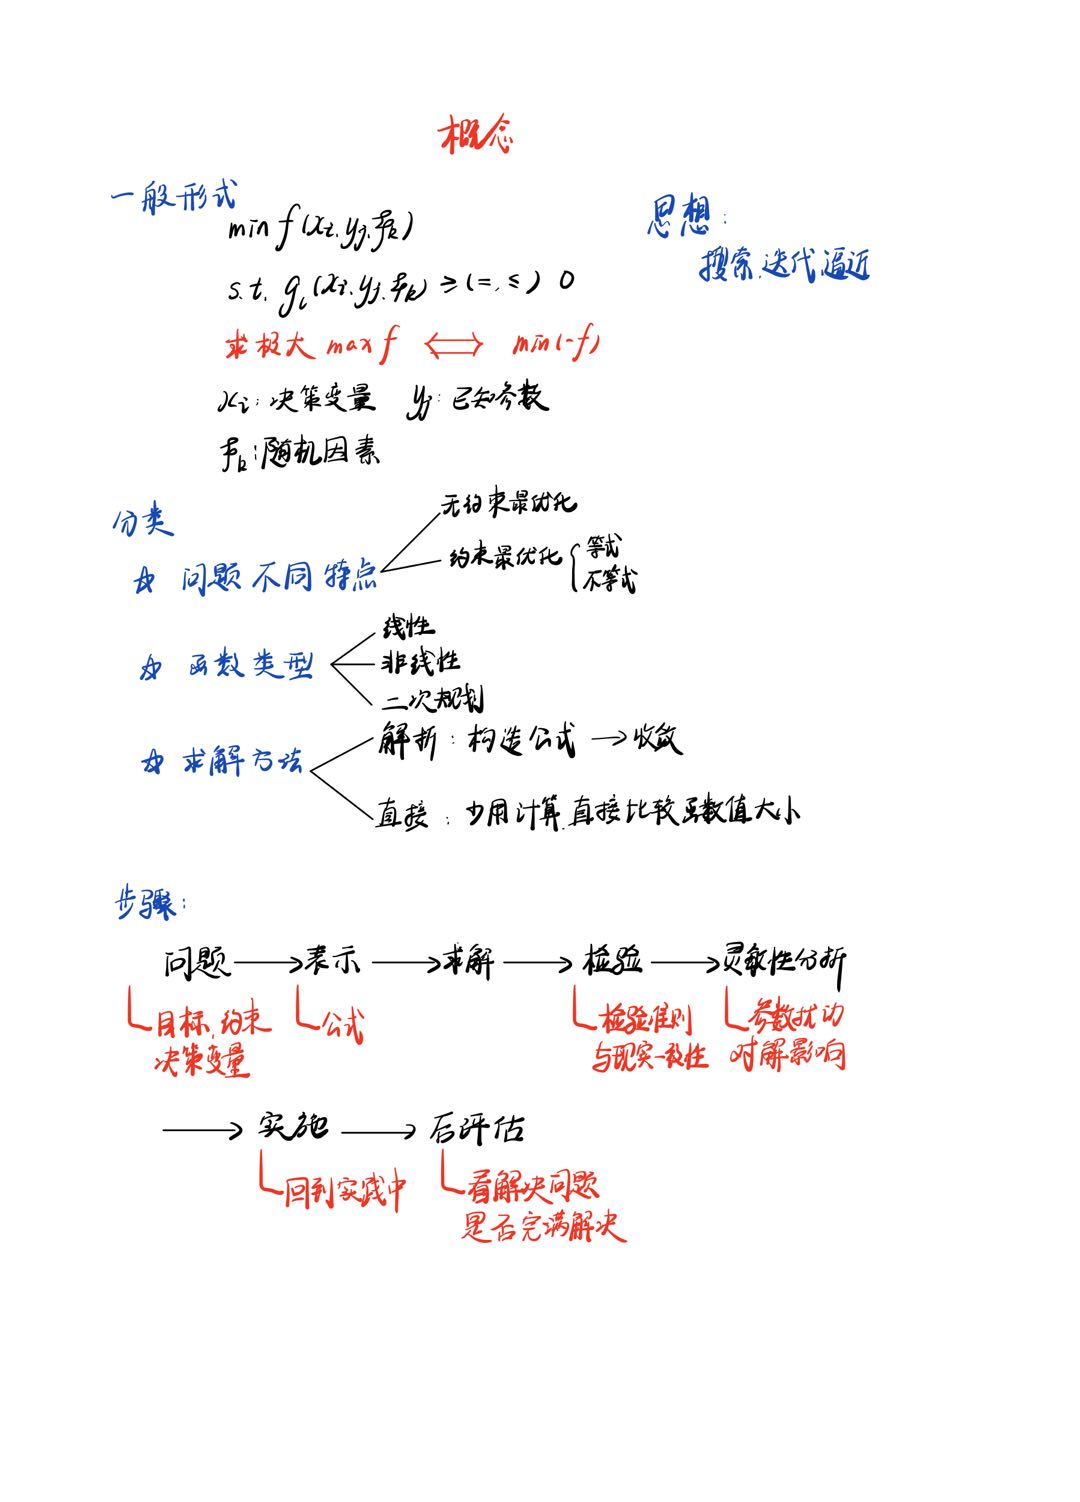 概念
一般形式
min f(xi, yj, ξk)
思想：
搜索、迭代、逼近
s.t. gi(xi, yj, ξk) ≥ (=, ≤) 0
求极大 max f ⟺ min(-f)
xi：决策变量 yj：已知参数
ξk：随机因素
分类
☆ 问题不同特点
无约束最优化
约束最优化 { 等式
不等式
☆ 函数类型
线性
非线性
二次规划
☆ 求解方法
解析：构造公式 → 收敛
直接：少用计算、直接比较函数值大小
步骤：
问题 → 表示 → 求解 → 检验 → 灵敏性分析
目标、约束
决策变量
公式
检验准则
与现实一致性
参数扰动
对解影响
→ 实施 → 后评估
回到实践中
看解决问题
是否完满解决